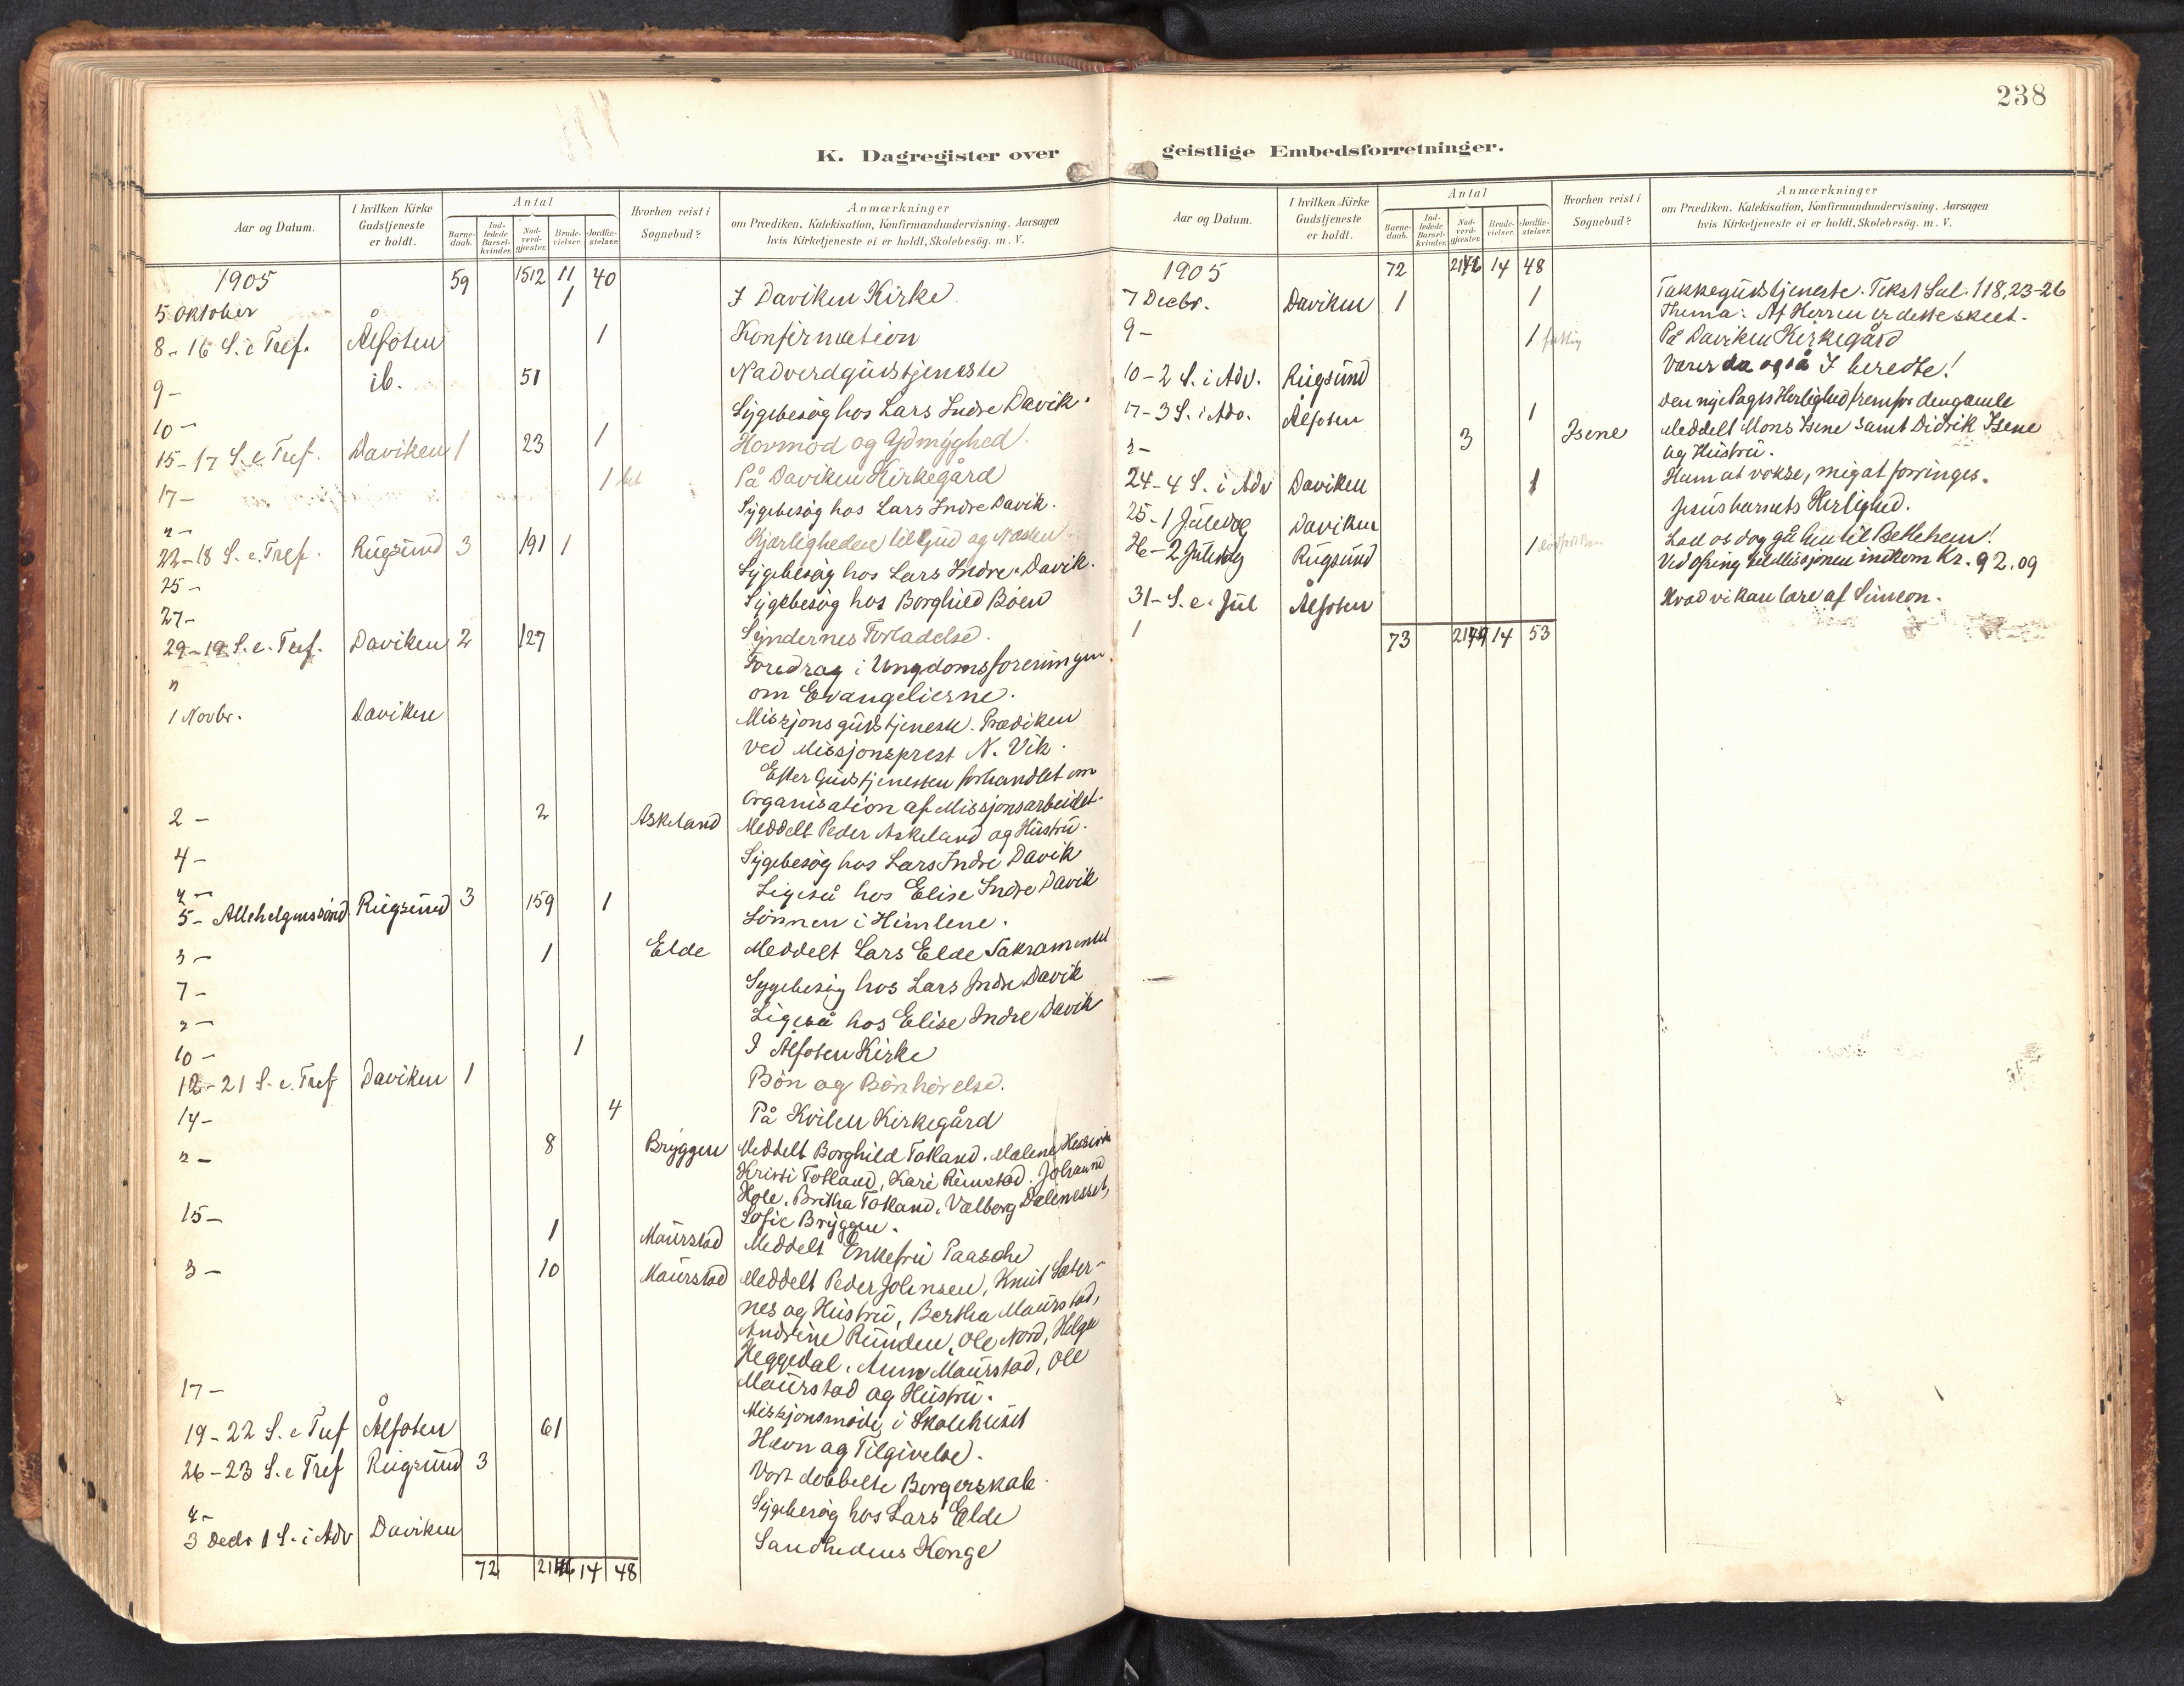 238
K. Dagregister over geistlige Embedsforretninger.
Aar og Datum.
I hvilken Kirke Gudstjeneste er holdt.
Antal
Barne-daab. Ind-ledede Barsel-kvinder. Nad-verd-gjester. Brude-vielser. Jordfæ-stelser.
Hvorhen reist i Sognebud?
Anmærkninger
om Prædiken, Katekisation, Konfirmandundervisning. Aarsagen
hvis Kirketjeneste ei er holdt, Skolebesøg. m. V.
1905 59 1512 11 40
5 Oktober 1 I Daviken Kirke
8- 16 S. e Tref. Ålfoten 1 Konfirmation
9- ib. 51 Nadverdgudstjeneste
10- Sygebesøg hos Lars Indre Davik.
15- 17 S. e Tref. Daviken 1 23 1 Hovmod og Ydmyghed.
17- 1 På Daviken Kirkegård
"- Sygebesøg hos Lars Indre Davik.
22- 18 S. e. Tref. Rugsund 3 191 1 Kjærligheden til Gud og Næsten.
25- Sygebesøg hos Lars Indre Davik.
27- Sygebesøg hos Borghild Böen
29- 19 S. e. Tref. Daviken 2 127 Syndernes Forladelse.
" Foredrag i Ungdomsforeningen
om Evangelierne.
1 Novbr. Daviken Missjonsgudstjeneste. Prædiken
ved Missjonsprest N. Vik.
Efter Gudstjenesten forhandlet om
Organisation af Missjonsarbeidet.
2- 2 Askeland Meddelt Peder Askeland og Hustru.
4- Sygebesøg hos Lars Indre Davik
"- Ligeså hos Elise Indre Davik
5- Allehelgenssønd. Rugsund 3 159 1 Lönnen i Himlene.
"- 1 Elde Meddelt Lars Elde Sakramentet
7- Sygebesøg hos Lars Indre Davik
"- Ligeså hos Elise Indre Davik
10- 1 I Ålfoten Kirke
12- 21 S. e. Tref Daviken 1 Bön og Bönhörelse.
14- 4 På Kvilen Kirkegård
"- 8 Bryggen Meddelt Borghild Totland. Malene
Kristi Totland, Kari Rimstad. Johanne
Hole. Britha Totland. Valborg Dalenesset,
Sofie Bryggen.
15- 1 Maurstad Meddelt Enkefru Paasche
"- 10 Maurstad Meddelt Peder Johnsen, Knut Sæter-
nes og Hustru, Bertha Maurstad,
Andrine Runden, Ole Nord, Helge
Heggedal. Anna Maurstad, Ole
Maurstad og Hustru.
17- Missjonsmöde i Skolehuset
19- 22 S. e Tref Ålfoten 61 Hævn og Tilgivelse.
26- 23 S. e Tref Rugsund 3 Vort dobbelte Borgerskab.
"- Sygebesøg hos Lars Elde
3 Decbr 1 S. i Adv Daviken Sandhedens Konge
72 14 48
Aar og Datum.
I hvilken Kirke Gudstjeneste er holdt.
Antal
Barne-daab. Ind-ledede Barsel-kvinder. Nad-verd-gjester. Brude-vielser. Jordfæ-stelser.
Hvorhen reist i Sognebud?
Anmærkninger
om Prædiken, Katekisation, Konfirmandundervisning. Aarsagen
hvis Kirketjeneste ei er holdt, Skolebesøg. m. V.
1905 72 14 48
7 Decbr. Daviken 1 1 Takkegudstjeneste. Tekst Sal. 118, 23-26
Thema: Af Herren er dette skeet.
9- 1 fattig På Daviken Kirkegård
10- 2 S. i Adv. Rugsund Værer da også I beredte!
17- 3 S. i Adv. Ålfoten 1 Den nye Pagts Herlighed fremfor den gamle
"- 3 Isene Meddelt Mons Isene samt Didrik Isene
og Hustru.
24- 4 S. i Adv Daviken 1 Ham at vokse, mig at forringes.
25- 1 Juledag Daviken Jesusbarnets Herlighed.
26- 2 Juledag Rugsund 1 Lad os dog gå hen til Betlehem!
Ved ofring til Missjonen indkom Kr. 92.09
31- S. e. Jul Ålfoten Hvad vi kan lære af Simeon.
1
73 14 53